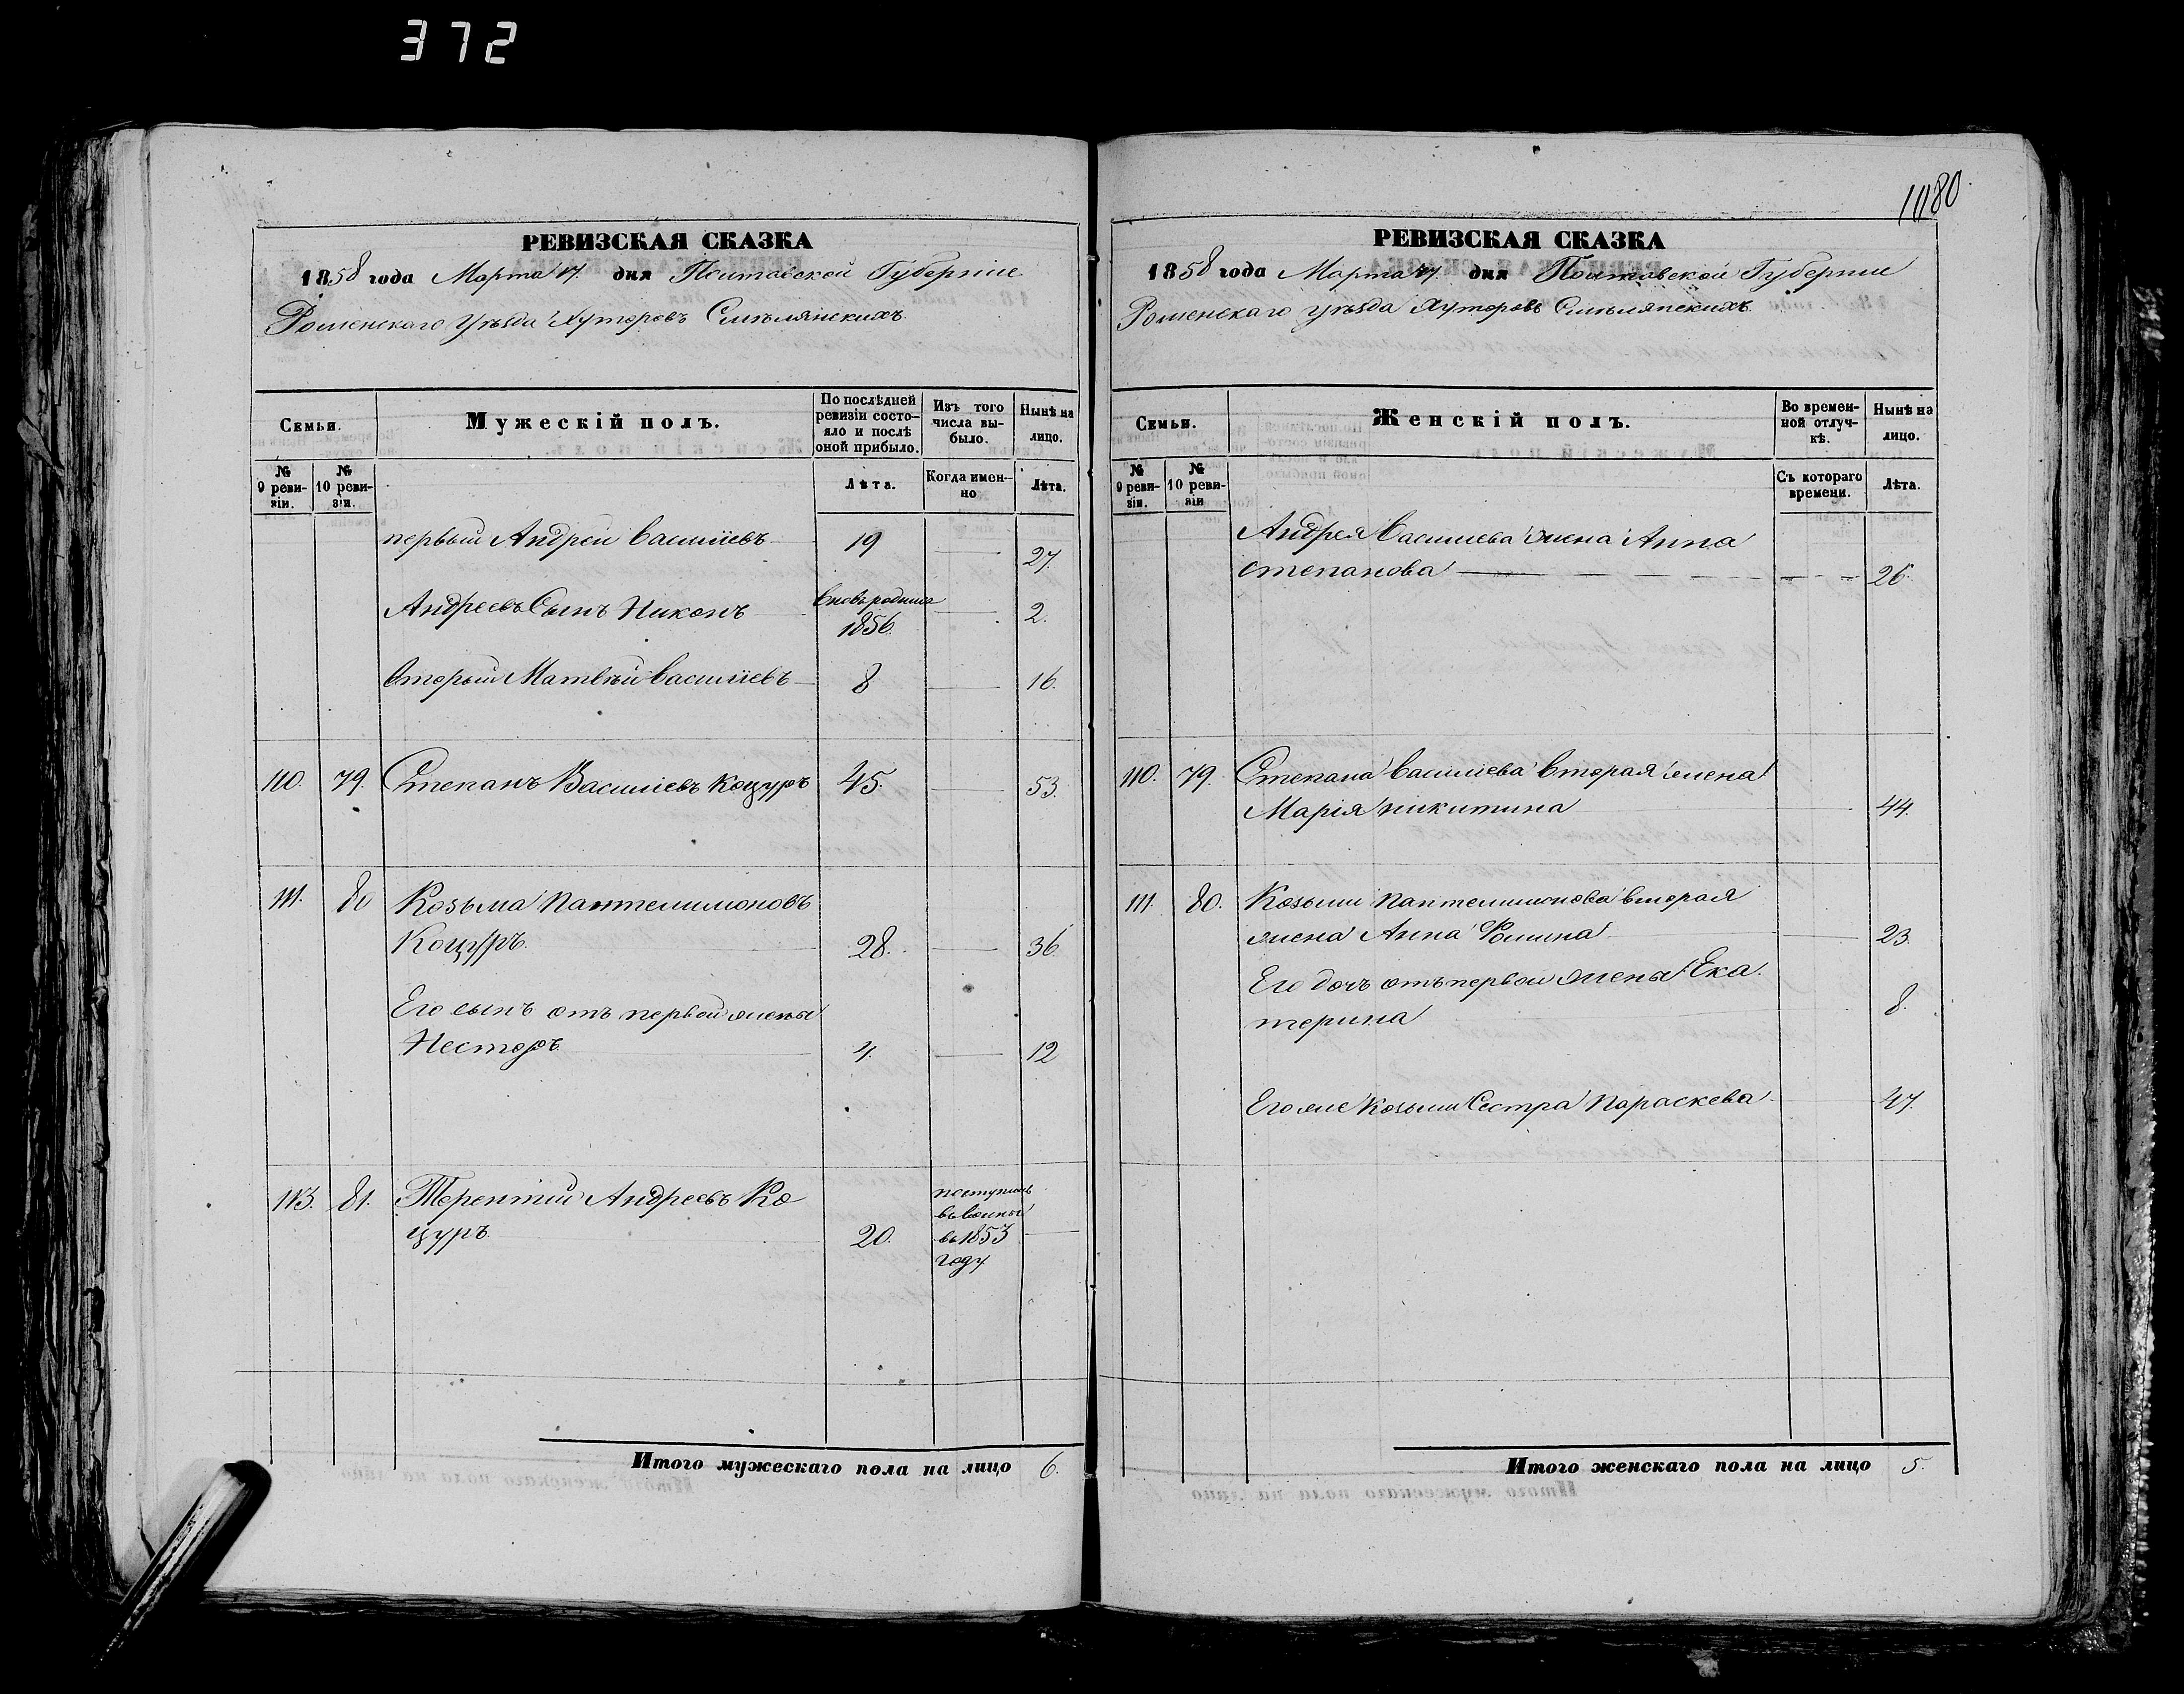 372
РЕВИЗСКАЯ СКАЗКА
1858 года Марта 17. дня Полтавской Губерніи
Роменскаго уѣзда Хуторовъ Смѣлянскихъ.
Семьи.
Мужескій полъ.
По послѣдней ревизіи состояло и послѣ оной прибыло.
Изъ того числа выбыло.
Нынѣ на лицо.
№ 9 ревизіи.
№ 10 ревизіи.
Лѣта.
Когда именно
Лѣта.
первый Андрей Василіевъ 19 27.
Андреевъ Сынъ Никонъ вновь родился 1856. 2.
Вторый Матвѣй Василіевъ 8 16.
110. 79. Степанъ Василіевъ Коцуръ 45. 53.
111. 80 Козьма Пантелимоновъ
Коцуръ. 28. 36.
Его сынъ отъ первой жены
Несторъ 4. 12
113. 81. Терентій Андреевъ Ко
цуръ 20. поступилъ
въ 1853
году
Итого мужескаго пола на лицо 6.
1080.
РЕВИЗСКАЯ СКАЗКА
1858 года Марта 17. дня Полтавской Губерніи
Роменскаго уѣзда Хуторовъ Смѣлянскихъ
Семьи.
Женскій полъ.
Во временной отлучкѣ.
Нынѣ на лицо.
№ 9 ревизіи.
№ 10 ревизіи
Съ котораго времени.
Лѣта.
Андрея Василиева жена Анна
Степанова 26.
110. 79. Степана Василіева вторая жена
Марія Никитина 44.
111. 80. Козьми Пантелимонова вторая
жена Анна Фомина 23.
Его дочь отъ первой жены Ека
терина 8.
Его же Козьми Сестра Параскева 47.
Итого женскаго пола на лицо 5.